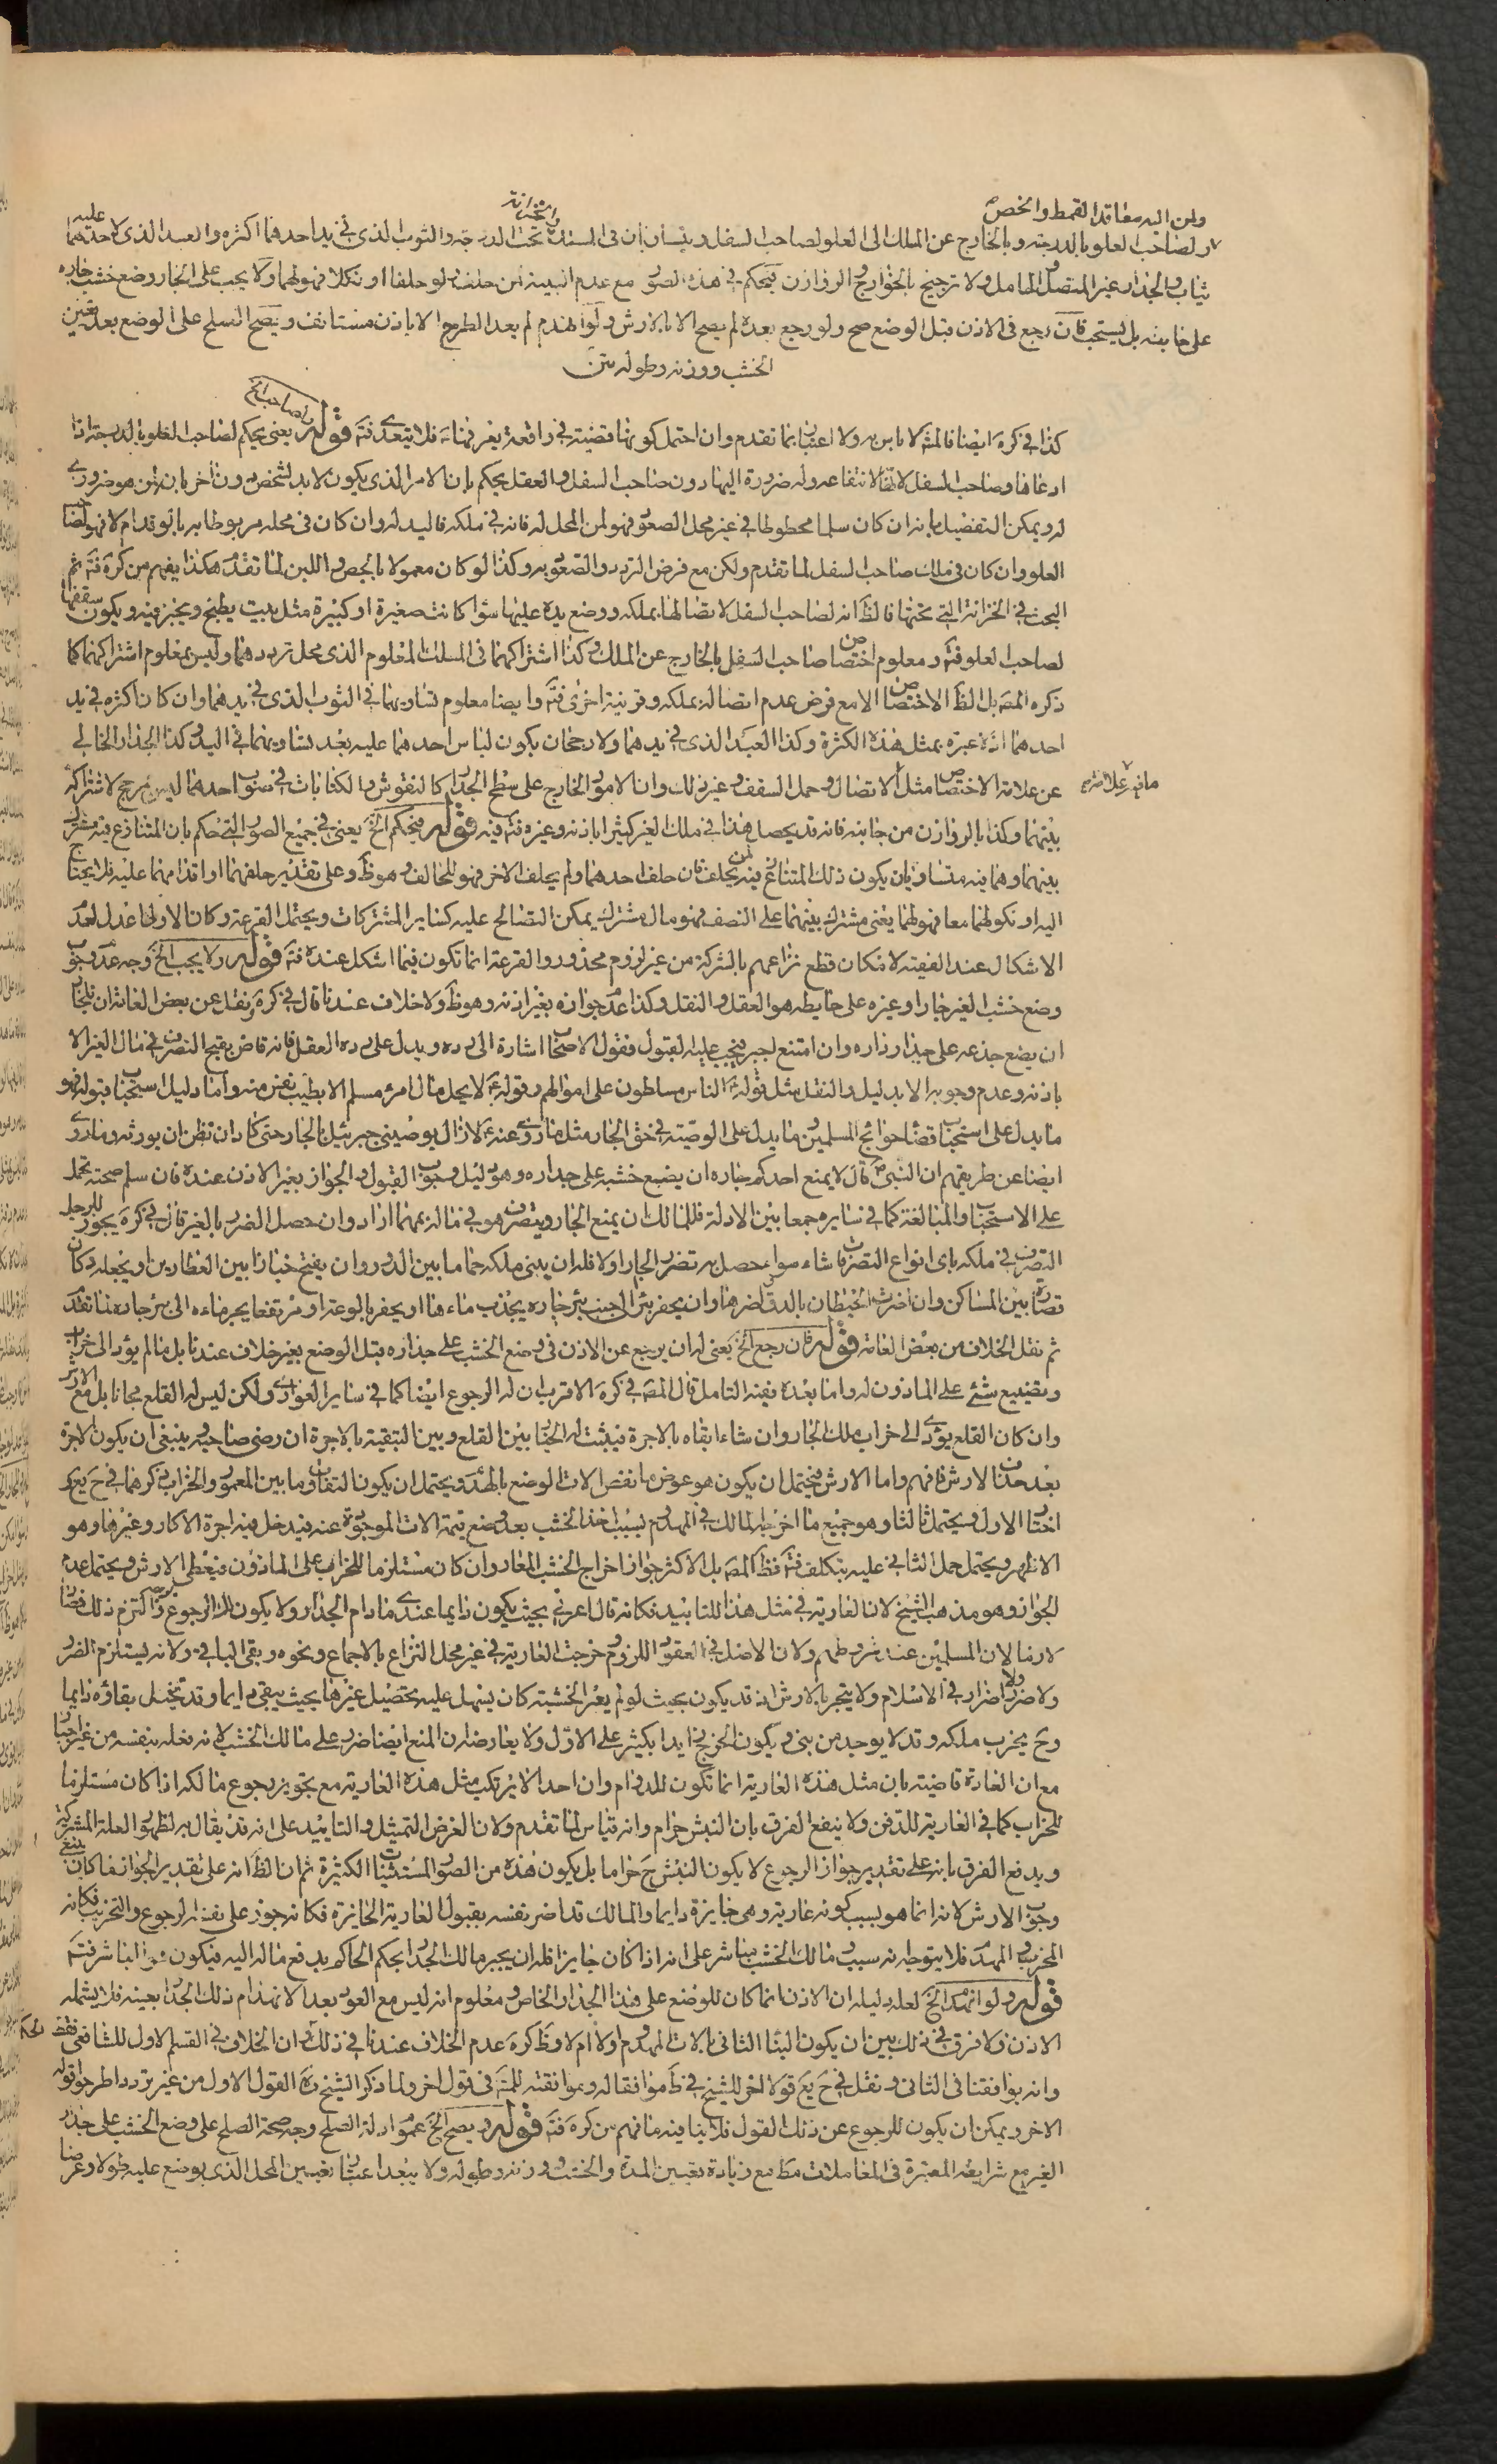 ولمن اليه معاقد القمط والخص
ولصاحب العلو بالدرجة وبالخارج عن المسلك الى العلو لصاحب السفل ويتساويان فى المسلك والخزانة تحت الدرجة والثوب الذى فى يد احدهما اكثره والعبد الذى لاحدهما عليه
ثياب والجدار غير المتصل والحامل ولا ترجيح بالخوارج والروازن فيحكم فى هذه الصور مع عدم البينة لمن حلف ولو حلفا او نكلا فهو لهما ولا يجب على الجار وضع خشب جاره
على حايطه بل يستحب فان رجع فى الاذن قبل الوضع صح ولو رجع بعده لم يصح الا بالارش ولو انهدم لم يعد الطرح الا باذن مستانف ويصح الصلح على الوضع بعد تعيين
الخشب ووزنه وطوله متن
كذا فى كره ايضا فالمشهور لا باس به ولا اعتبار بما تقدم وان احتمل كونها قضية فى واقعة يعرفها فلا يتعدى فت قوله ولصاحب الخ يعنى يحكم لصاحب العلو بالدرجة اذا
ادعاها وصاحب السفل لانتفاعه وله ضرورة اليها دون صاحب السفل والعقل يحكم بان الامر الذى يكون لا بد لشخص دون اخر بان لمن هو ضرورى
له ويمكن التفصيل بانه ان كان سلما محطوطا فى غير محل الصعود فهو لمن المحل له فانه فى ملكه فاليد له وان كان فى محله مربوطا به باتو قدام لا فهو لصاحب
العلو وان كان فى ملك صاحب السفل لما تقدم ولكن مع فرض التردد والصعود به وكذا لو كان معمولا بالجص واللبن لما تقدم هكذا يفهم من كره فت ثم
البحث فى الخزانة التى تحتها فالظ انه لصاحب السفل لاتصالها بملكه ووضع يده عليها سواء كانت صغيرة او كبيرة مثل بيت يطبخ ويخبز فيه ويكون سقفها
لصاحب العلو فت ومعلوم اختصاص صاحب السفل بالخارج عن المسلك وكذا اشتراكهما فى المسلك المعلوم الذى محل ترددهما وليس بمعلوم اشتراكهما كما
ذكره المص بل الظ الاختصاص الا مع فرض عدم اتصاله بملكه وقرينة اخرى فت وايضا معلوم تساويهما فى الثوب الذى فى يدهما وان كان اكثره فى يد
احدهما اذ لا عبرة بمثل هذه الكثرة وكذا العبد الذى فى يدهما ولا رجحان بكون لباس احدهما عليه بعد تساويهما فى اليد وكذا الجدار الخالى
عن علامة الاختصاص مثل الاتصال وحمل السقف وغير ذلك وان الامور الخارج على سطح الجدار كالنقوش والكتابات فى صوب احدهما ليس بمرجح لاشتراكه
بينهما وكذا بالروازن من جانبه فانه قد يحصل هذا فى ملك الغير كثيرا باذنه وغيره فت فيه قوله فيحكم الخ يعنى فى جميع الصور التى حكم بان المتنازع فيه مشترك
بينهما وهما فيه متساويان يكون ذلك المتنازع فيه لمن يحلف فان حلف احدهما ولم يحلف الاخر فهو للحالف وهو ظ وعلى تقدير حلفهما او اقدامهما عليه فلا يحتاج
اليه او نكولهما معا فهو لهما يعنى مشترك بينهما على النصف فهو مال مشترك يمكن التصالح عليه كساير المشتركات ويحتمل القرعة وكان الاول اعدل لعدم
الاشكال عند الفقيه لامكان قطع نزاعهم بالشركة من غير لزوم محذور والقرعة انما تكون فيما اشكل عنده فت قوله ولا يجب الخ وجه عدم وجوب
وضع خشب الغير جارا وغيره على حايطه هو العقل والنقل وكذا عدم جوازه بغير اذنه وهو ظ ولا خلاف عندنا قال فى كره ونقل عن بعض العامة ان للجار
ان يضع جذعه على جدار داره وان امتنع اجبر فيجب عليه القبول فقول الاصحاب اشارة الى رده ويدل على رده العقل فانه قاض بقبح التصرف فى مال الغير الا
باذنه وعدم وجوبه الا بدليل والنقل مثل قوله ع الناس مسلطون على اموالهم وقوله ع لا يحل مال امرء مسلم الا بطيب نفس منه واما دليل استحباب قبوله فهو
ما يدل على استحباب قضاء حوائج المسلمين وما يدل على الوصية فى حق الجار مثل ما روى عنه ع لا زال يوصينى جبرئيل بالجار حتى كاد ان نظن ان يورثه وما روى
ايضا عن طريقهم ان النبى ص قال لا يمنع احدكم جاره ان يضع خشبه على جداره وهو دليل وجوب القبول والجواز بغير الاذن عنده فان سلم صحته يحمل
على الاستحباب والمبالغة كما فى سايره جمعا بين الادلة فللمالك ان يمنع الجار ويتصرف هو فى ماله مهما اراد وان حصل الضرر بالغير قال فى كره يجوز للرجل
التصرف فى ملكه باى انواع التصرفات شاء سواء حصل به تضرر الجار او لا فله ان يبنى ملكه حماما بين الدور وان يفتح خبازا بين العطارين او يجعله دكان
قصارة بين المساكن وان اضرت الحيطان بالدق واضرها وان يحفر بئرا الى جنب بئر جاره يجذب ماءها او يحفر بالوعة او مرتفقا يجر ماءه الى بئر جاره لما تقدم
ثم نقل الخلاف من بعض العامة قوله فان رجع الخ يعنى له ان يرجع عن الاذن فى وضع الخشب على جداره قبل الوضع بغير خلاف عندنا بل ما لم يؤد الى خراب
وتضييع شئ على الماذون له واما بعده ففيه التامل قال المص فى كره الاقرب ان له الرجوع ايضا كما فى ساير العوارى ولكن ليس له القلع مجانا بل مع الارش
وان كان القلع يؤدى الى خراب ملك الجار وان شاء ابقاه بالاجرة فيثبت له الخيار بين القلع وبين التبقية بالاجرة ان رضى صاحبه وينبغى ان يكون الاجرة
بعد حذف الارش فافهم واما الارش فيحتمل ان يكون هو عوض ما نقص الات الوضع بالهدم ويحتمل ان يكون التفاوت ما بين المعمور والخراب ذكرهما فى ح يع
اختار الاول ويحتمل ثالثا وهو جميع ما اخرجه المالك فى المهدوم بسبب اخذ الخشب بعد وضع قيمة الات الموجودة عنه فيدخل فيه اجرة الاكار وغيرها وهو
الاظهر ويحتمل حمل الثانى عليه بتكلف فت فظ المص بل الاكثر جواز اخراج الخشب المعار وان كان مستلزما للخراب على الماذون فيعطى الارش ويحتمل عدم
الجواز وهو مذهب الشيخ لان العارية فى مثل هذا للتابيد فكانه قال اعرنى بحيث يكون دايما عندى ما دام الجدار ولا يكون لك الرجوع والتزم ذلك فصار
لازما لان المسلمين عند شروطهم ولان الاصل فى العقود اللزوم خرجت العارية فى غير محل النزاع بالاجماع ونحوه وبقى الباقى ولانه يستلزم الضرر
ولا ضرر ولا اضرار فى الاسلام ولا ينجبر بالارش اذ قد يكون بحيث لو لم يعر الخشبة كان يسهل عليه تحصيل غيرها بحيث يبقى دايما وقد تخيل بقاؤه دايما
وح يخرب ملكه وقد لا يوجد من يبنى ويكون الخرج زايدا بكثير على الاول ولا يعارضه ان المنع ايضا ضرر على مالك الخشب لانه فعله بنفسه من غير اجبار
مع ان العادة قاضية بان مثل هذه العارية انما تكون للدوام وان احدا لا يرتكب مثل هذه العارية مع تجويز رجوع مالكه اذا كان مستلزما
للخراب كما فى العارية للدفن ولا ينفع الفرق بان النبش حرام وانه قياس لما تقدم ولان الغرض التمثيل والتاييد على انه قد يقال به لظهور العلة المشتركة
ويدفع الفرق بانه على تقدير جواز الرجوع لا يكون النبش ح حراما بل يكون هذه من الصور المستثنيات الكثيرة ثم ان الظ انه على تقدير الجواز فما كان ينبغى
وجوب الارش لانه انما هو بسبب كونه عارية وهى جايزة دايما والمالك قد اضر نفسه بقبول العارية الجايزة فكانه جوز على نفسه الرجوع والتخريب فكانه
المخرب والمهدم فلا يتوجه انه سبب ومالك الخشب مباشر على انه اذا كان جايزا فله ان يجبر مالك الجدار بحكم الحاكم بدفع ماله اليه فيكون هو المباشر فت
قوله ولو انهدم الخ لعله دليله ان الاذن انما كان للوضع على هذا الجدار الخاص ومعلوم انه ليس مع العود بعد الانهدام ذلك الجدار بعينه فلا يشمله
الاذن ولا فرق فى ذلك بين ان يكون البناء الثانى بالات المهدوم اولا ام لا وظ كره عدم الخلاف عندنا فى ذلك ان الخلاف فى القسم الاول للشافعى فقط
وانه يوافقنا فى الثانى ونقل فى ح يع قولا اخر للشيخ فى ط موافقا له وموافقته للمص فى قول اخر ولما ذكر الشيخ ره القول الاول من غير تردد اطرح قوله
الاخر ويمكن ان يكون للرجوع عن ذلك القول فلا ينافيه ما فهم من كره فت قوله ويصح الخ عموم ادلة الصلح وجه صحة الصلح على وضع الخشب على جدار
الغير مع شرايطه المعتبرة فى المعاملات مط مع زيادة تعيين المدة والخشب ووزنه وطوله ولا يبعد اعتبار تعيين المحل الذى يوضع عليه طولا وعرضا